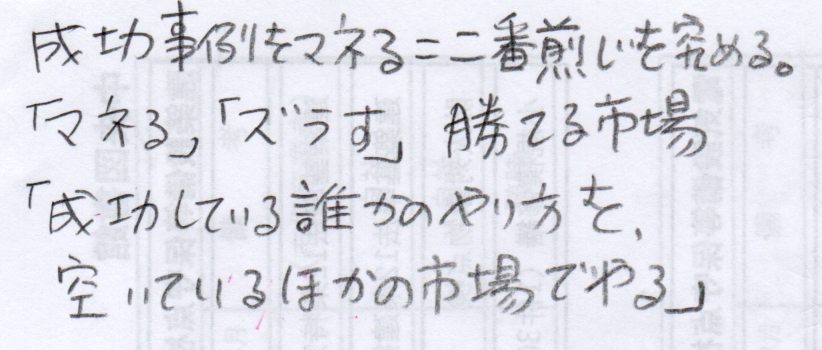 成功事例をマネる=二番煎じを究める。
「マネる」「ズラす」 勝てる市場
「成功している誰かのやり方を、
空いているほかの市場でやる」